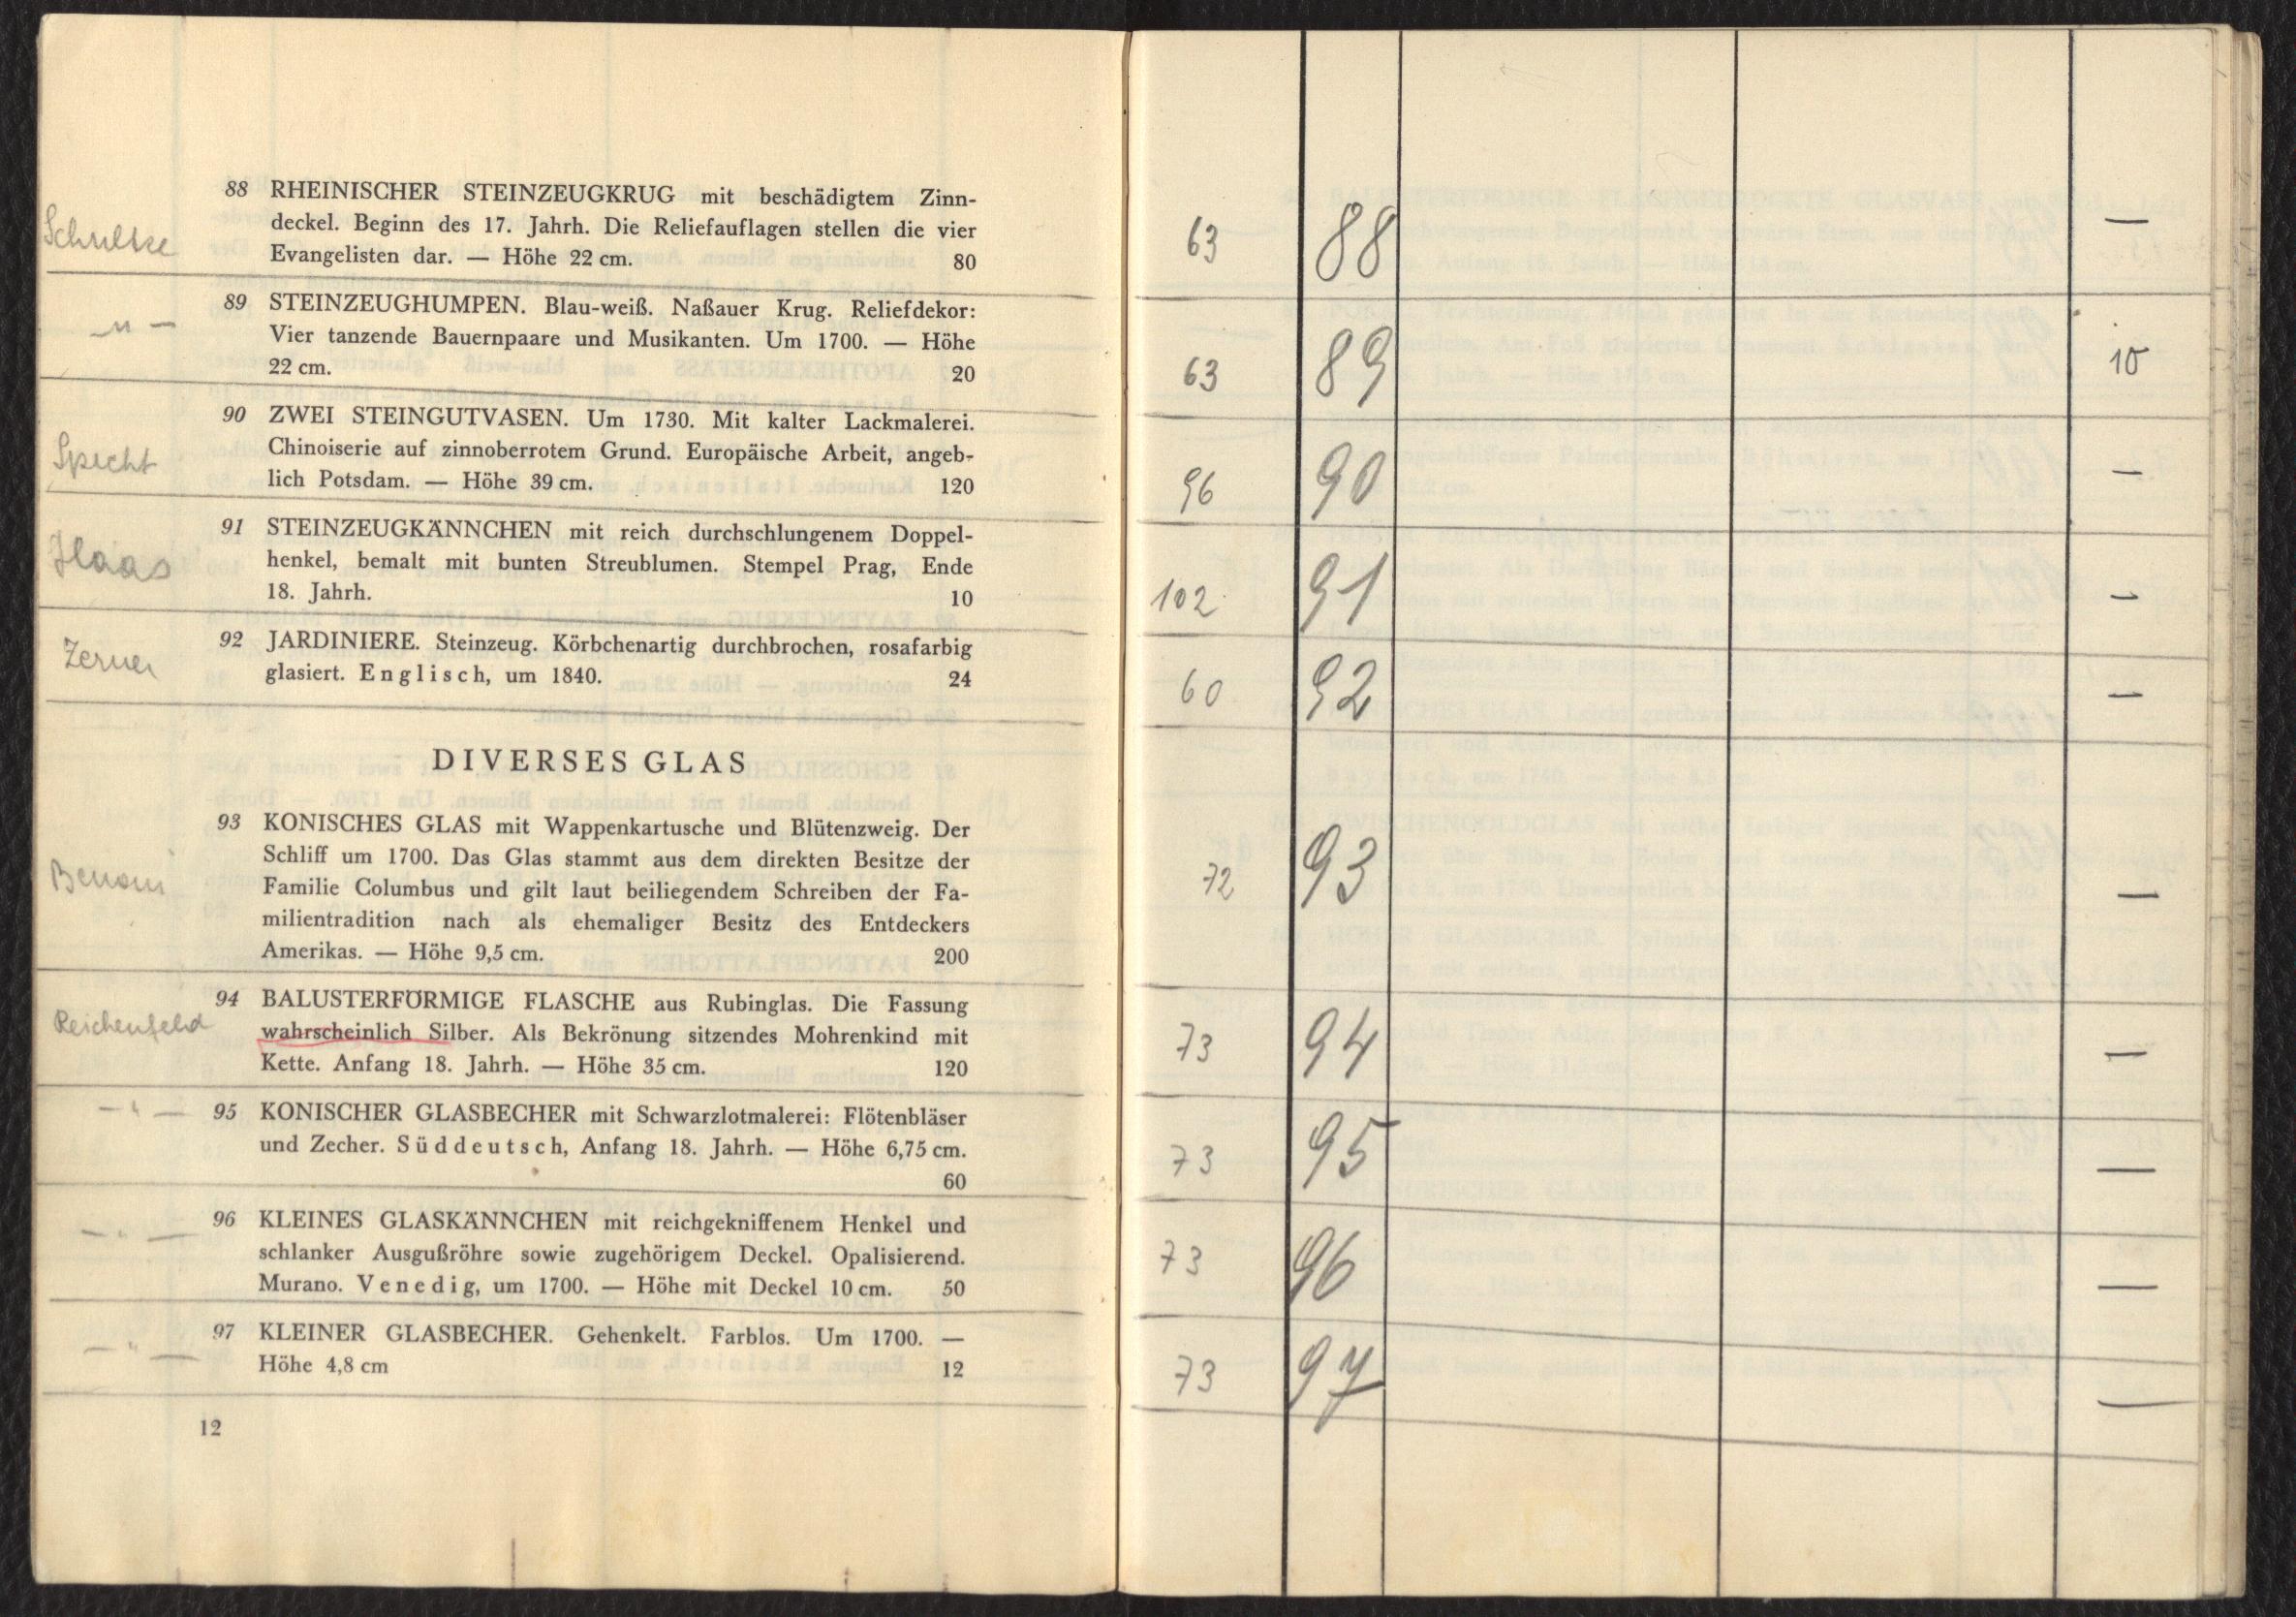 88 RHEINISCHER STEINZEUGKRUG mit beschädigtem Zinn-
deckel. Beginn des 17. Jahrh. Die Reliefauflagen stellen die vier
Evangelisten dar. — Höhe 22 cm. 80
— " —
89 STEINZEUGHUMPEN. Blau-weiß. Naßauer Krug. Reliefdekor:
Vier tanzende Bauernpaare und Musikanten. Um 1700. — Höhe
22 cm. 20
Specht
90 ZWEI STEINGUTVASEN. Um 1730. Mit kalter Lackmalerei.
Chinoiserie auf zinnoberrotem Grund. Europäische Arbeit, angeb-
lich Potsdam. — Höhe 39 cm. 120
Haas
91 STEINZEUGKÄNNCHEN mit reich durchschlungenem Doppel-
henkel, bemalt mit bunten Streublumen. Stempel Prag, Ende
18. Jahrh. 10
Zerner
92 JARDINIERE. Steinzeug. Körbchenartig durchbrochen, rosafarbig
glasiert. Englisch, um 1840. 24
DIVERSES GLAS
93 KONISCHES GLAS mit Wappenkartusche und Blütenzweig. Der
Schliff um 1700. Das Glas stammt aus dem direkten Besitze der
Familie Columbus und gilt laut beiliegendem Schreiben der Fa-
milientradition nach als ehemaliger Besitz des Entdeckers
Amerikas. — Höhe 9,5 cm. 200
Reichenfeld
94 BALUSTERFÖRMIGE FLASCHE aus Rubinglas. Die Fassung
wahrscheinlich Silber. Als Bekrönung sitzendes Mohrenkind mit
Kette. Anfang 18. Jahrh. — Höhe 35 cm. 120
— " —
95 KONISCHER GLASBECHER mit Schwarzlotmalerei: Flötenbläser
und Zecher. Süddeutsch, Anfang 18. Jahrh. — Höhe 6,75 cm.
60
— " —
96 KLEINES GLASKÄNNCHEN mit reichgekniffenem Henkel und
schlanker Ausgußröhre sowie zugehörigem Deckel. Opalisierend.
Murano. Venedig, um 1700. — Höhe mit Deckel 10 cm. 50
— " —
97 KLEINER GLASBECHER. Gehenkelt. Farblos. Um 1700. —
Höhe 4,8 cm 12
12
63 88 —
63 89 10
96 90 —
102 91 —
60 92 —
72 93 —
73 94 —
73 95 —
73 96 —
73 97 —